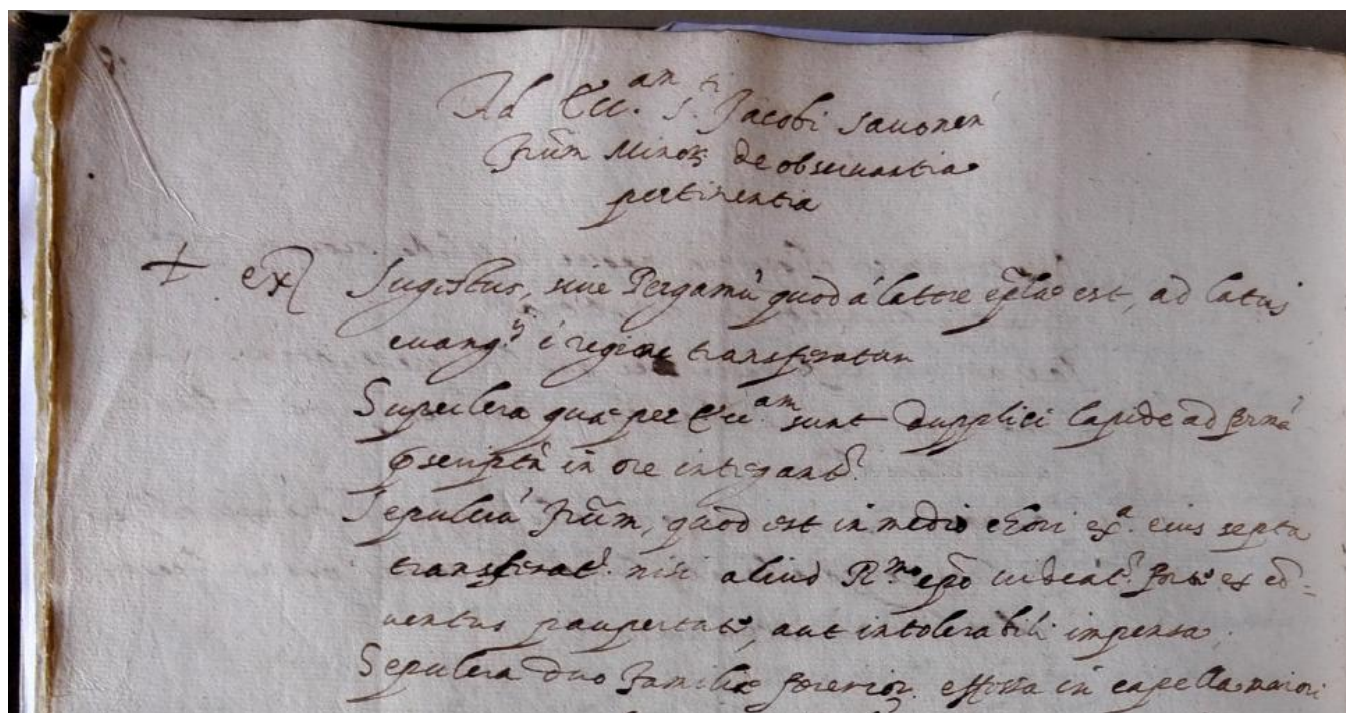 Ad Ecc.am S.ti Jacobi Sauonen
frum Minor de obseruantia
pertinentia
+ ex Sugestus, siue Pergamū quod à latere ep̄lae est, ad latus
euang.ij ē regione transferatur
Sepulcra quae per Ecc.am sunt dupplici lapide ad formā
pscriptā in ore integant.
Sepulcrū frūm, quod est in medio chori ex.a eius septa
transferat. nisi aliud R.mo epō uideat. forte ex cō-
uentus paupertate, aut intolerabili impensa,
Sepulcra duo familiae effossa in capella maiori